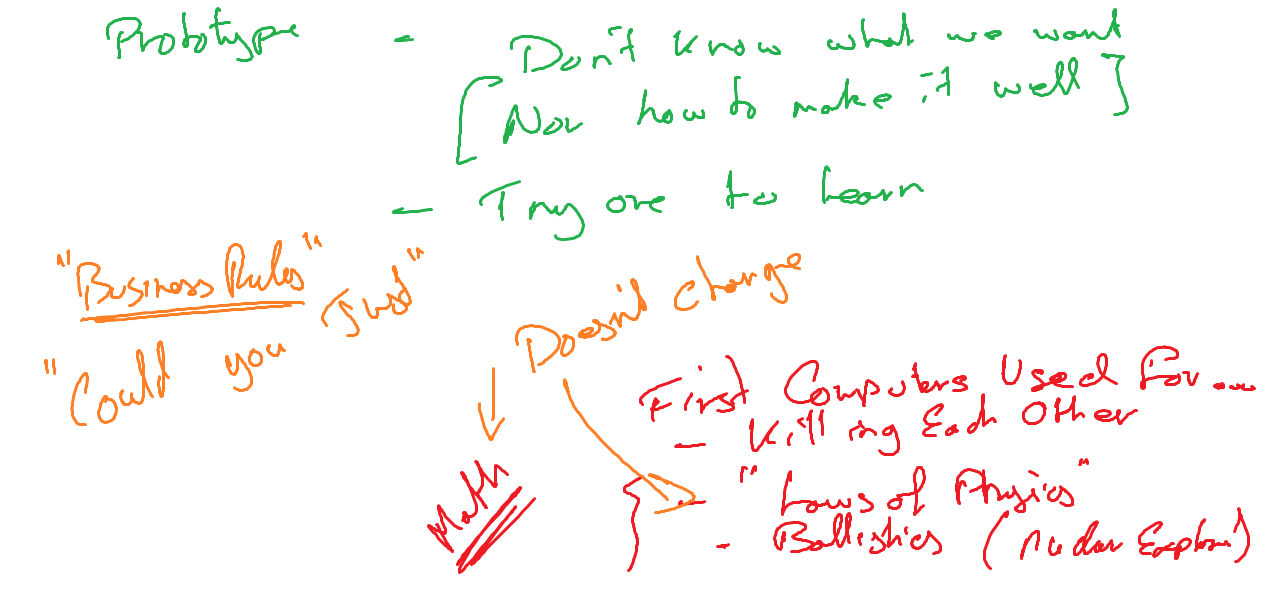 Prototype - Don't know what we want
[Nor how to make it well]
- Try one to learn
"Business Rules"
"Could you Just"
Doesn't change
Math
First Computers Used For...
- Killing Each Other
- "Laws of Physics"
- Ballistics (Nuclear